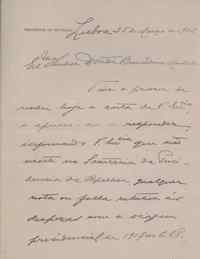 Lisboa 25 de Março de 19
Senhor Doutor Bernardino
Tive o prazer de
receber hoje a carta de V. Exª
e apresso-me a responder,
informando V. Exª que não
existe na Secretaria da Presi-
dencia da Republica, qualquer
nota ou folha relativa ás
despezas com a viagem
presidencial, de 1917